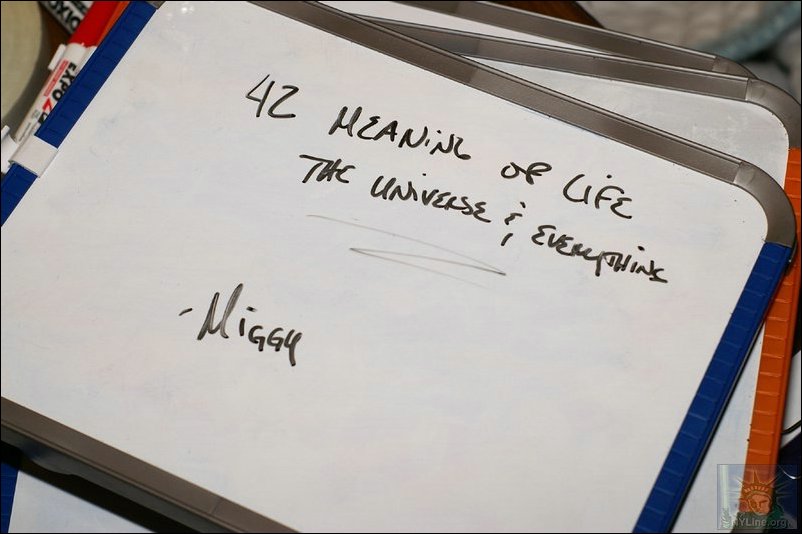 42 MEANING OF LIFE
THE UNIVERSE & EVERYTHING
- MIGGY
EXPO
NYLine.org